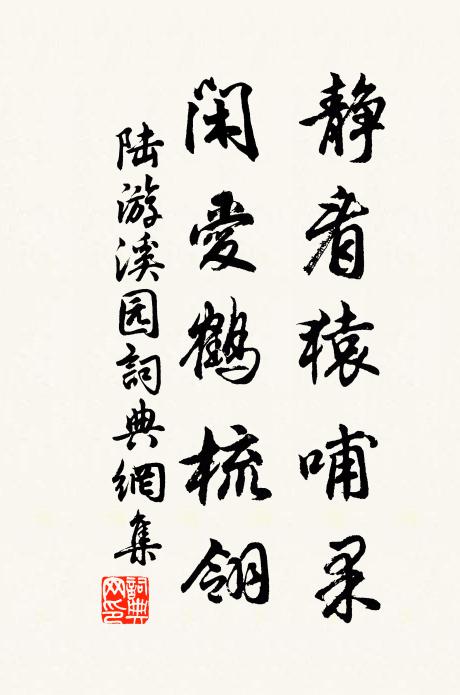 静看猿哺果
闲愛鶴梳翎
陆游溪园詞典網集
詞典
网印